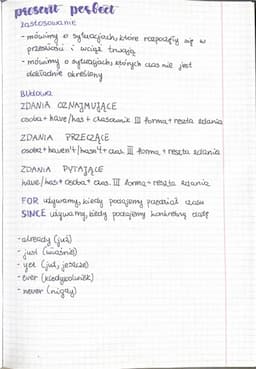 present perfect
zastosowanie
- mówimy o sytuacjach, które rozpoczęły się w
przeszłości i wciąż trwają
- mówimy o sytuacjach, których czas nie jest
dokładnie określony
Budowa
ZDANIA OZNAJMUJĄCE
osoba + have/has + czasownik III forma + reszta zdania
ZDANIA PRZECZĄCE
osoba + haven't/hasn't + czas. III forma + reszta zdania
ZDANIA PYTAJĄCE
have/has + osoba + czas. III forma + reszta zdania
FOR używamy, kiedy podajemy przedział czasu
SINCE używamy, kiedy podajemy konkretną datę
- already (już)
- just (właśnie)
- yet (już, jeszcze)
- ever (kiedykolwiek)
- never (nigdy)